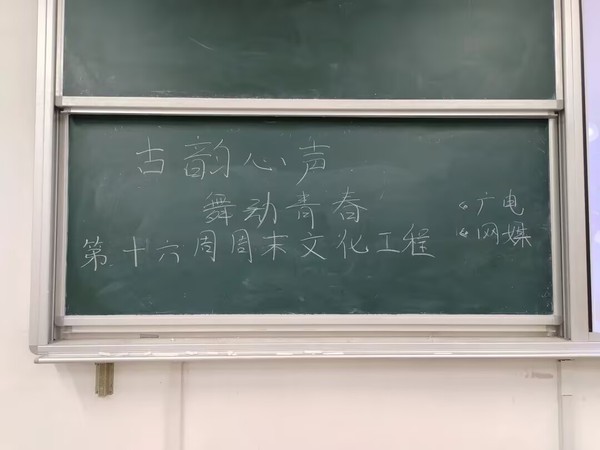 古韵心声
舞动青春
第十六周周末文化工程
广电
网媒